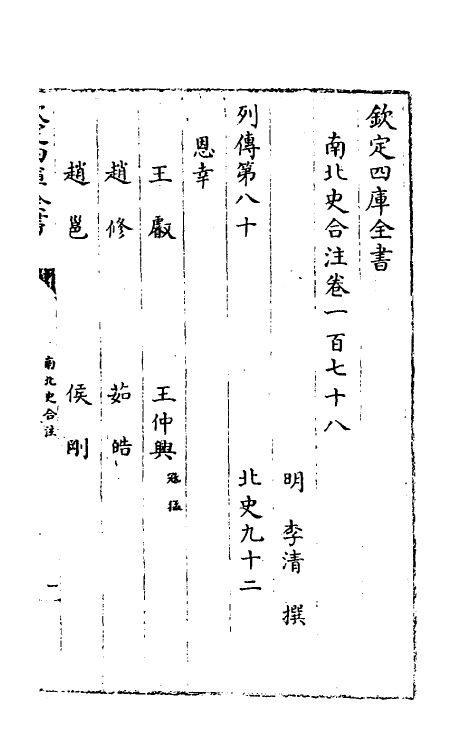 欽定四庫全書
南北史合注卷一百七十八
明 李清 撰
列傳第八十 北史九十二
恩幸
王叡 王仲興 寇猛
趙修 茹皓
趙邕 侯剛
南北史合注